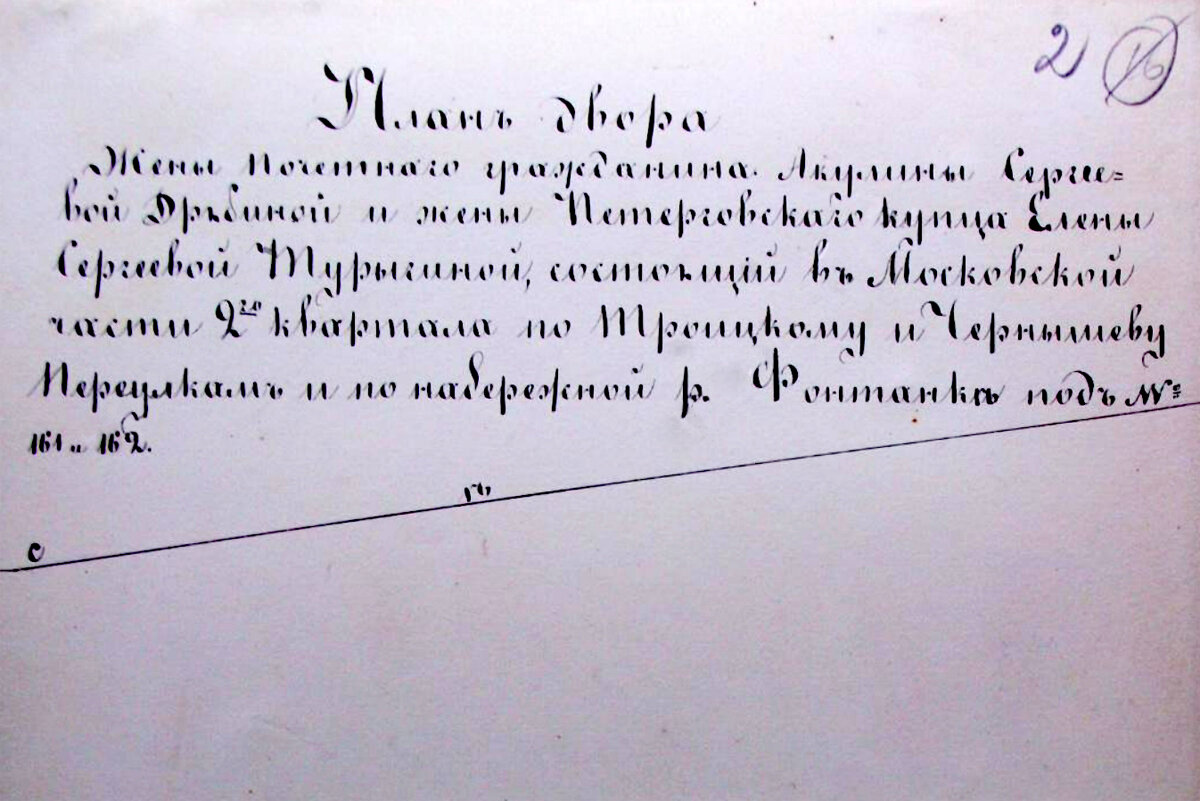 2 16
Планъ двора
Жены почетнаго гражданина Акулины Сергее=
вой Дрябиной и жены Петерговскаго купца Елены
Сергеевой Турыгиной, состоящій въ Московской
части 2го квартала по Троицкому и Чернышеву
Переулкамъ и по набережной р. Фонтанкѣ подъ №
161 и 162.
г
с